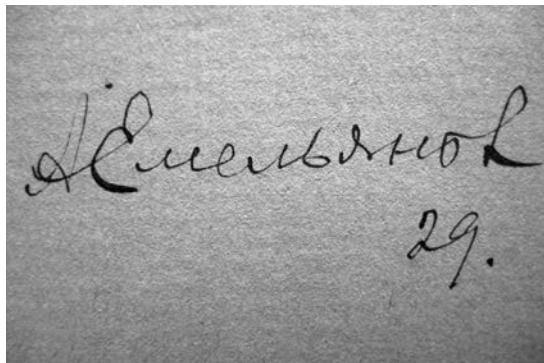 А Емельянов
29.